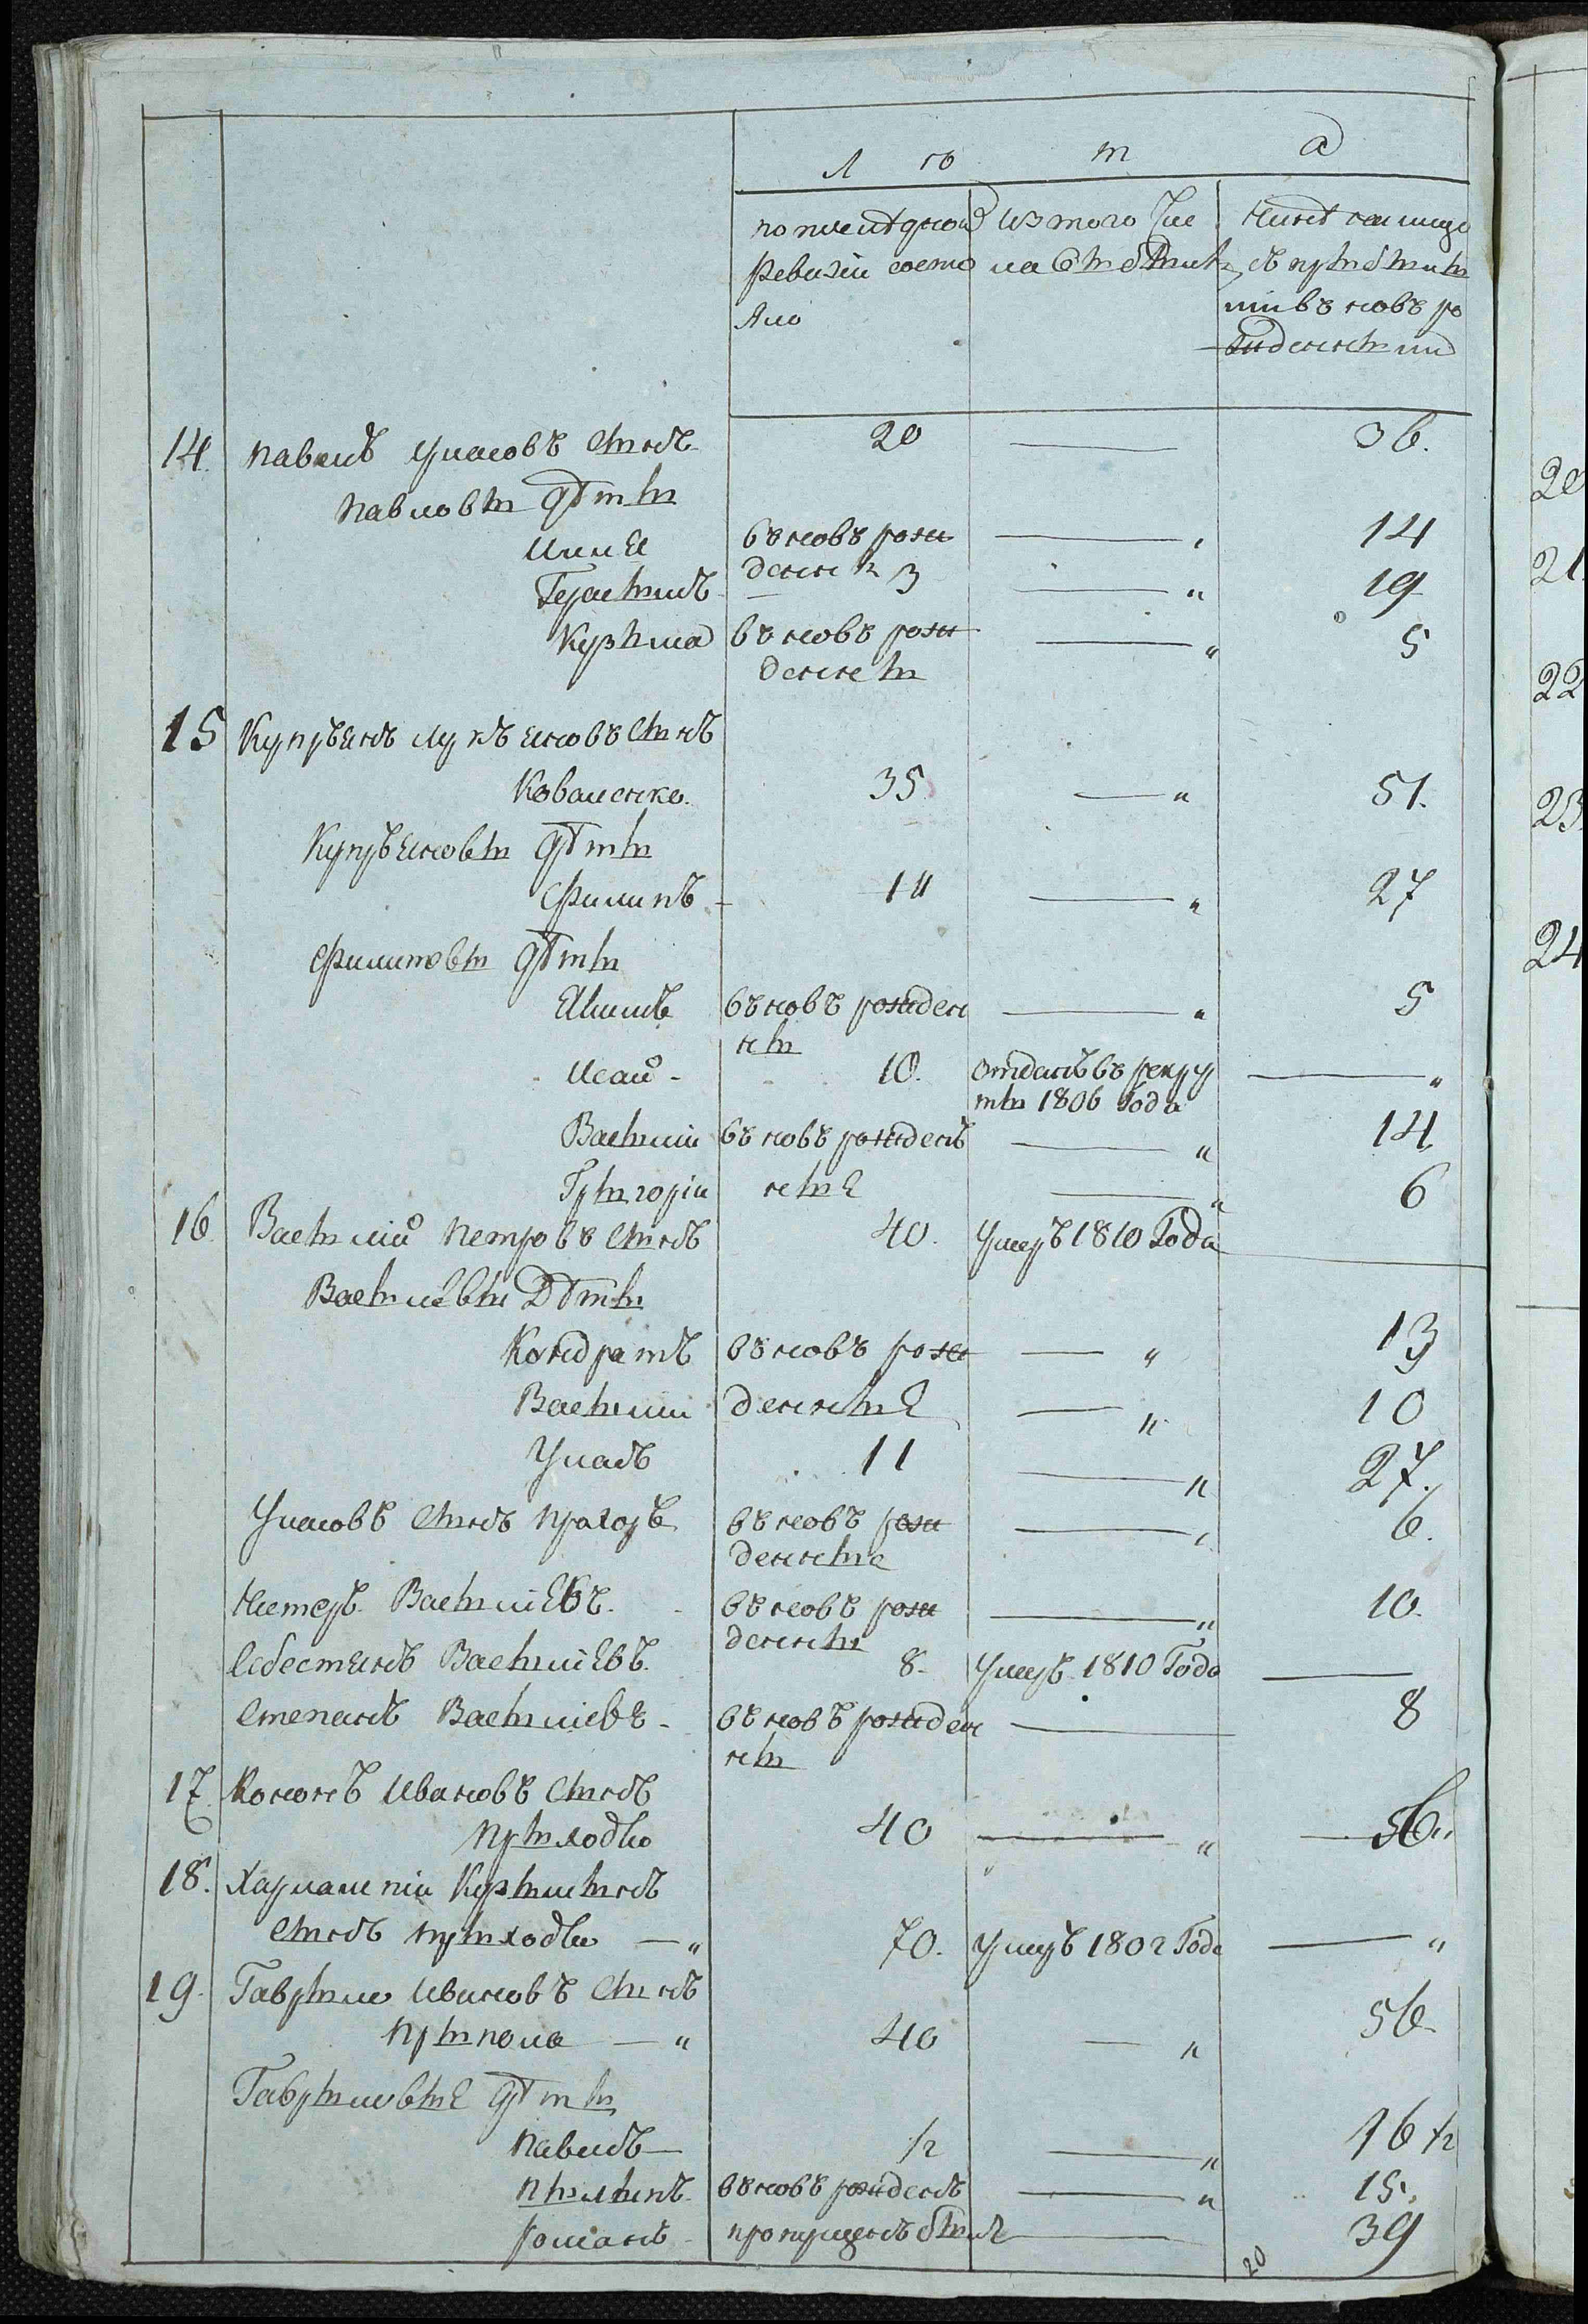 Лѣта
по последней ревизіи состо яло
изъ того числа выбыли
ныне на лицо съ прибыли ми въ новь рожденными
14. Павелъ Уласовъ сынъ 20 — 36.
Павловы дѣти
Илия въ новь рож — 14
Герасимъ денны 3 — „ 19
Кузьма въ новь рож — „ 5
денны
15 Купръянъ Лукъяновъ сынъ
Коваленко. 35 — „ 51.
Купръяновы дѣти
Филипъ - 11 — „ 27
Филиповы дѣти
Якимъ въ новь рожден — „ 5
ны
Исай - 10. отданъ въ рекру — „
ты 1806 года
Василій въ новь рожденъ — „ 14
Григорій ные — „ 6
16. Василій Петровъ сынъ 40. умеръ 1810 года —
Василевы дѣти
Кондратъ въ новь рож — „ 13
Василій денные — „ 10
Уласъ 11 — „ 27.
Уласовъ сынъ Прохоръ въ новь рож — 6.
денные
Нестеръ Василіевъ. въ новь рож — „ 10.
денны
Себестянъ Василіевъ. 8. умеръ 1810 года —
Степанъ Василіевъ - въ новь рожден — 8
ны
17. Кононъ Ивановъ сынъ
Приходко 40 — „ — 56„
18. Харлампій Кузминъ
сынъ Приходко — „ 70. умеръ 1802 года — „
19. Гаврило Ивановъ сынъ
— „ 40 — „ 56
Гавриловые дѣти
Павелъ — ½ — „ 16 ½
Пилипъ въ новь рожденъ — „ 15.
Романъ - пропущенъ былъ — 39
20
20
21
22
23
24